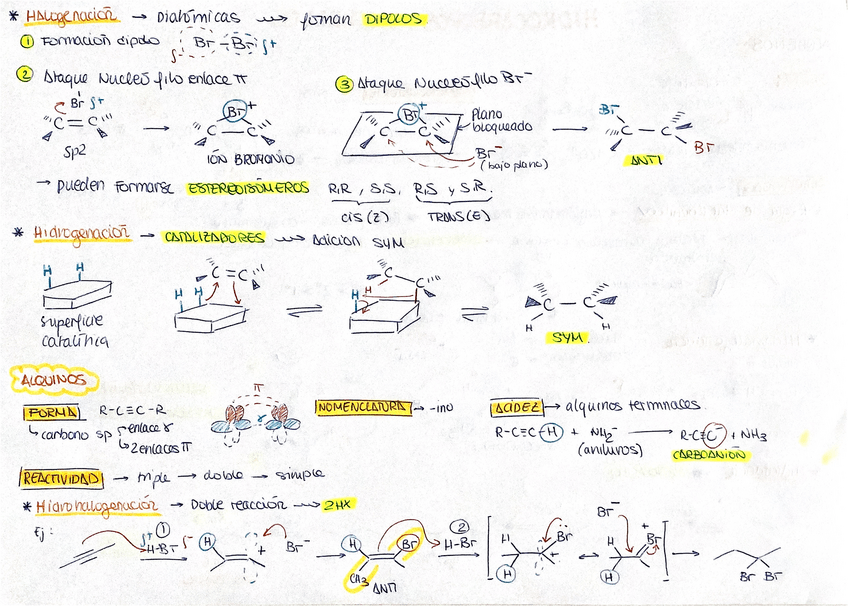 * Halogenación → Diatómicas ⟿ forman DIPOLOS
① Formación dipolo Br - Br δ+
δ-
② Ataque Nucleófilo enlace π
③ Ataque Nucleófilo Br⁻
Br δ+
C = C
sp2
Br +
C - C
IÓN BROMONIO
Br +
C - C
Plano
bloqueado
Br⁻
(bajo plano)
Br
C - C
Br
ANTI
→ pueden formarse ESTEREOISÓMEROS R,R , S,S. R,S y S,R.
CIS (Z) TRANS (E)
* Hidrogenación → CATALIZADORES ⟿ Adición SYM
H H
superficie
catalítica
C = C
H H
C C
H H
C - C
H H
SYM.
ALQUINOS
FORMA R-C≡C-R
↳ carbono sp enlace γ
↳ 2 enlaces π
π
γ
NOMENCLATURA → -ino
ACIDEZ → alquinos terminales.
R-C≡C-H + NH₂⁻ → R-C≡C⁻ + NH₃
(aniluros) CARBOANIÓN
REACTIVIDAD → triple → doble → simple
* Hidrohalogenación → Doble reacción ⟿ 2HX
Ej:
①
δ+ H-Br δ-
H + Br⁻
H Br
CH₃ ANTI
②
H-Br
H Br
H +
Br⁻
H + Br
H
Br Br